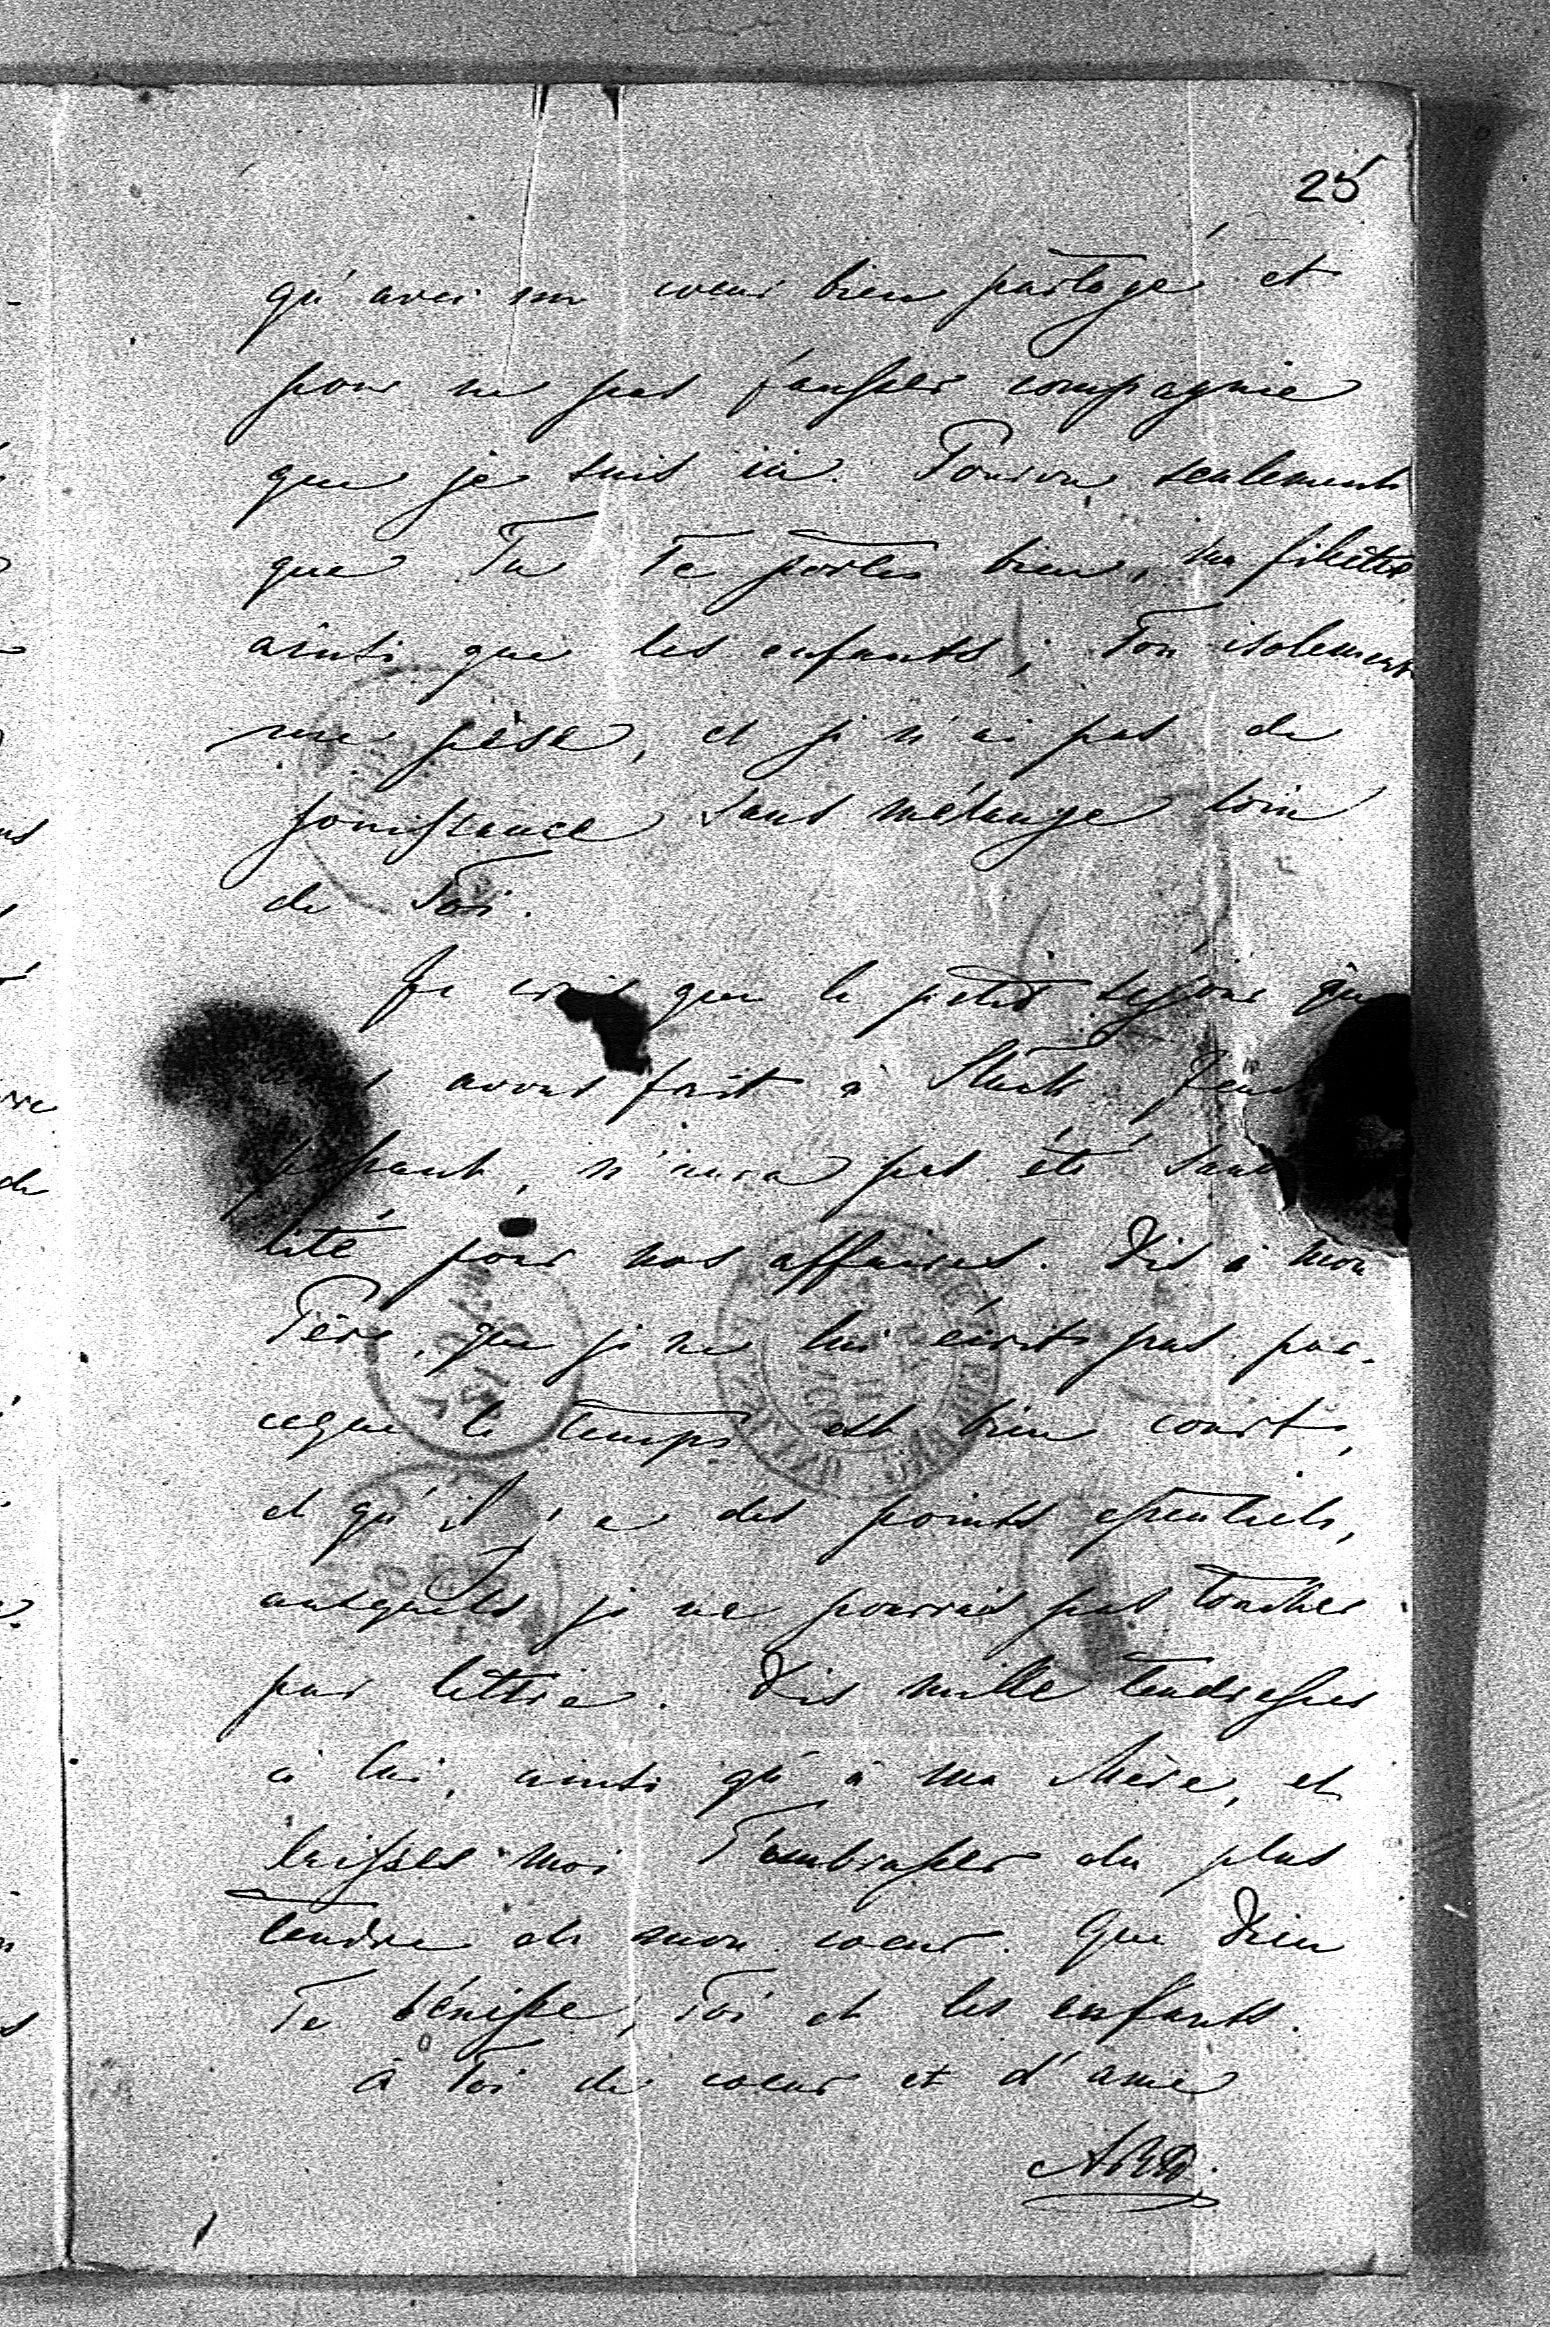 25
qu'avec un coeur bien partagé et
pour ne pas fausser compagnie
que je suis ici. Pourvu seulement
que Tu Te portes bien, ma fillette
ainsi que les enfants; Ton isolement
me pèse, et je n'ai pas de
jouissance sans mélange loin
de Toi.
Je crois que le petit séjour que
avons fait à
passant, n'aura pas été sans
lité pour nos affaires. Dis à mon
Père, que je ne lui écrits pas, par-
ceque le temps est bien court,
et qu'il y a des points essentiels,
auxquels je ne pourrais pas toucher
par lettre. Dis mille tendresses
à lui, ainsi qu'à ma Mère, et
laisses moi T'embrasser du plus
tendre de mon coeur. Que Dieu
Te bénisse, Toi et les enfants.
à Toi de coeur et d'ame